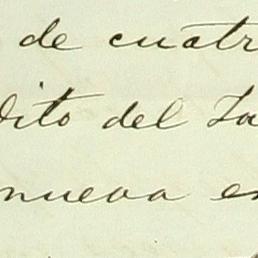 de cuatr
dito del Za
nueva es